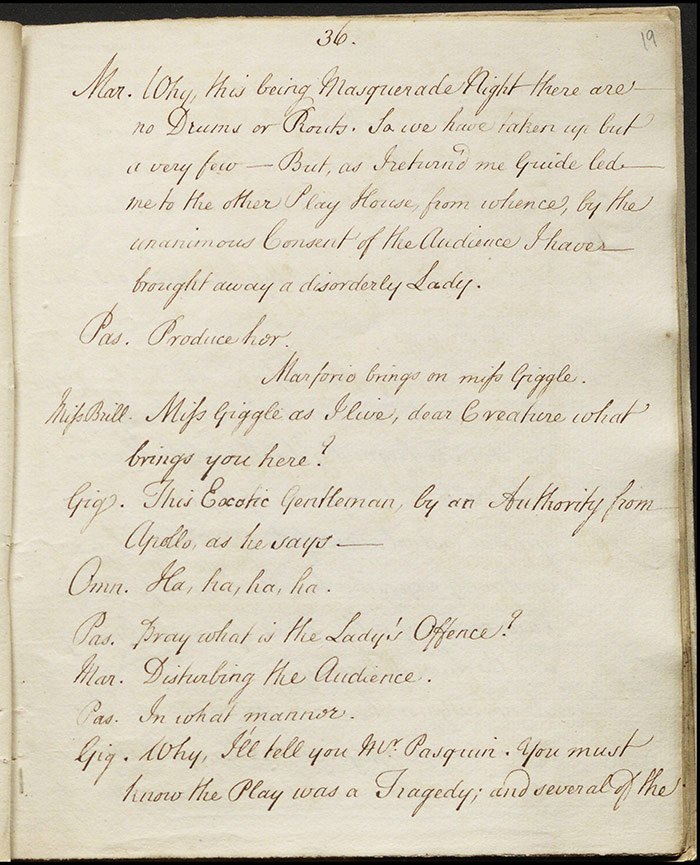 36.
19
Mar. Why, this being Masquerade Night there are
no Drums or Routs. So we have taken up but
a very few — But, as I return'd me Guide led
me to the other Play House, from whence, by the
unanimous Consent of the Audience I have
brought away a disorderly Lady.
Pas. Produce her.
Marforio brings on miss Giggle.
Miss Brill. Miss Giggle as I live, dear Creature what
brings you here?
Gig. This Exotic Gentleman, by an Authority from
Apollo, as he says —
Omn. Ha, ha, ha, ha.
Pas. Pray what is the Lady's Offence?
Mar. Disturbing the Audience.
Pas. In what manner.
Gig. Why, I'll tell you Mr. Pasquin. You must
know the Play was a Tragedy; and several of the